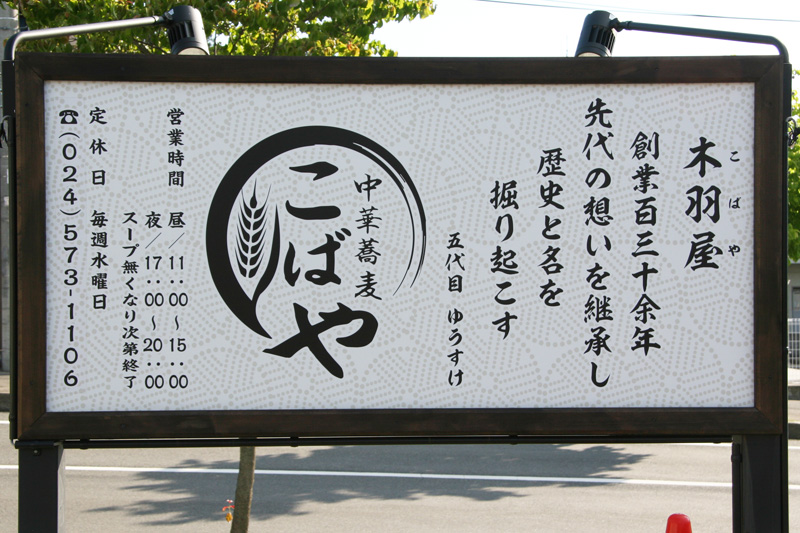 木羽屋
こばや
創業百三十余年
先代の想いを継承し
歴史と名を
掘り起こす
五代目 ゆうすけ
中華蕎麦
こばや
営業時間 昼/11:00~15:00
夜/17:00~20:00
スープ無くなり次第終了
定休日 毎週水曜日
☎(024)573-1106